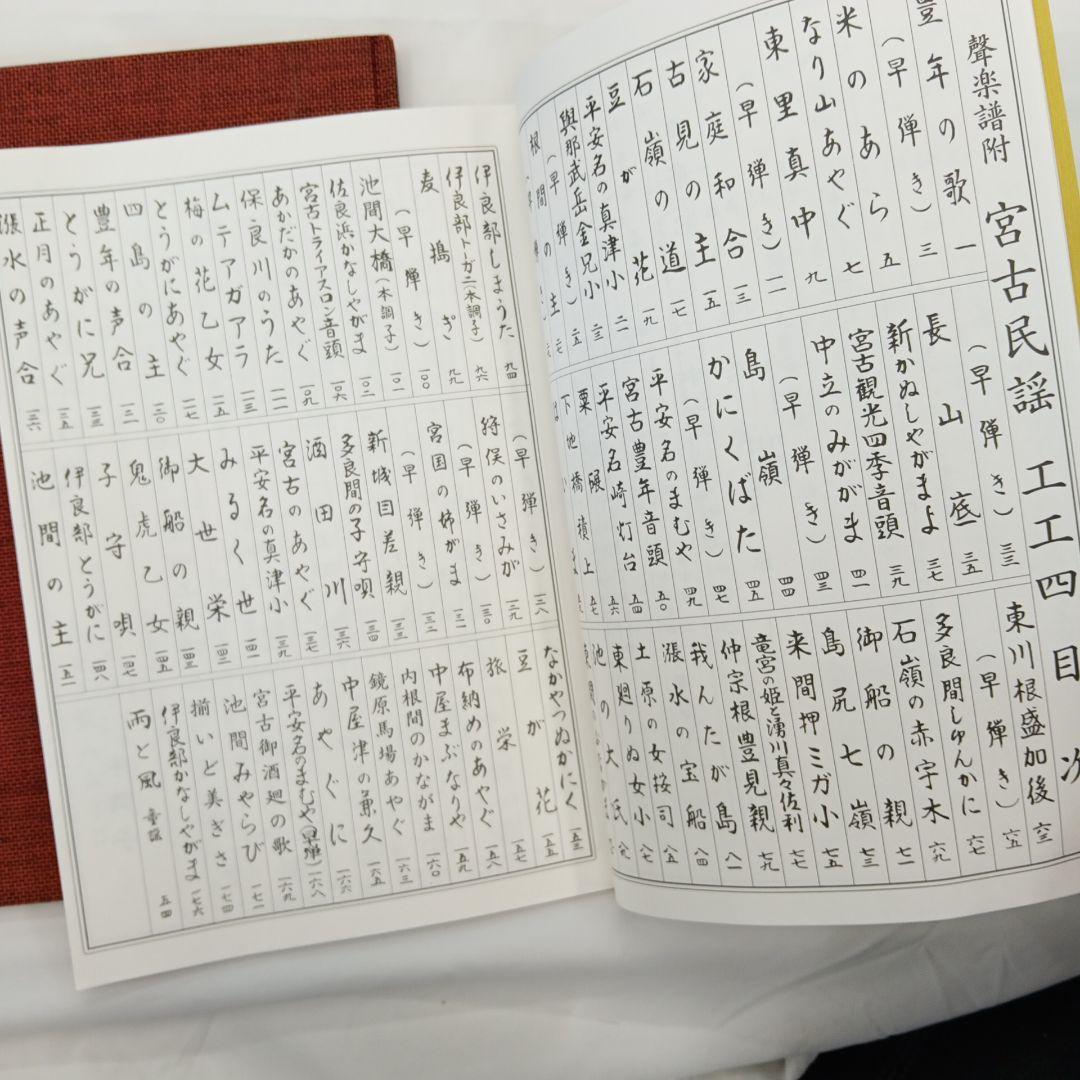 聲楽譜附 宮古民謡 工工四目次
豊年の歌 一
(早弾き) 三
米のあら 五
なり山あやぐ 七
東里真中 九
(早弾き) 一一
家庭和合 一三
古見の主 一五
石嶺の道 一七
豆が花 一九
平安名の真津小 二一
與那武岳金兄小 二三
(早弾き) 二五
根間の主 二七
(早弾き) 三三
長山底 三五
新かぬしやがまよ 三七
宮古観光四季音頭 三九
中立のみががま 四一
(早弾き) 四三
島嶺 四四
かにくばた 四五
(早弾き) 四七
平安名のまむや 四九
宮古豊年音頭 五〇
平安名崎灯台 五四
粟礙 五六
下地橋積上 五七
東川根盛加後 六三
(早弾き) 六五
多良間しゅんかに 六七
石嶺の赤宇木 六九
御船の親 七一
島尻七嶺 七三
来間押ミガ小 七七
竜宮の姫と湧川真々佐利 七九
仲宗根豊見親 八一
我んたが島 八四
漲水の宝船 八五
土原の女按司 八七
東廻りぬ女小 八九
池の大氏
伊良部しまうた 九四
伊良部トーガニ(本調子) 九六
麦搗ぎ 九九
(早弾き) 一〇〇
池間大橋(本調子) 一〇一
佐良浜かなしやがま 一〇三
宮古トライアスロン音頭 一〇六
あかだかのあやぐ 一〇九
保良川のうた 一一一
ムテアガアラ 一一三
梅の花乙女 一一五
とうがにあやぐ 一一七
四島の主 一二〇
豊年の声合 一二一
とうがに兄 一二三
正月のあやぐ 一二五
漲水の声合 一二六
(早弾き) 一二八
狩俣のいさみが 一二九
(早弾き) 一三〇
宮国の姉がま 一三一
(早弾き) 一三二
新城目差親 一三三
多良間の子守唄 一三四
酒田川 一三六
宮古のあやぐ 一三七
平安名の真津小 一三九
みるく世 一四一
大世栄 一四二
御船の親 一四三
鬼虎乙女 一四五
子守唄 一四七
伊良部とうがに 一四八
池間の主 一五一
なかやつぬかにく 一五三
豆が花 一五五
旅栄 一五七
布納めのあやぐ 一五八
中屋まぶなりや 一五九
内根間のかながま 一六〇
鏡原馬場あやぐ 一六三
中屋津の兼久 一六五
あやぐに 一六六
平安名のまむや(早弾) 一六八
宮古御酒廻の歌 一六九
池間みやらび 一七一
揃いど美ぎさ 一七四
伊良部かなしやがま 一七六
雨と風 童謡 五四